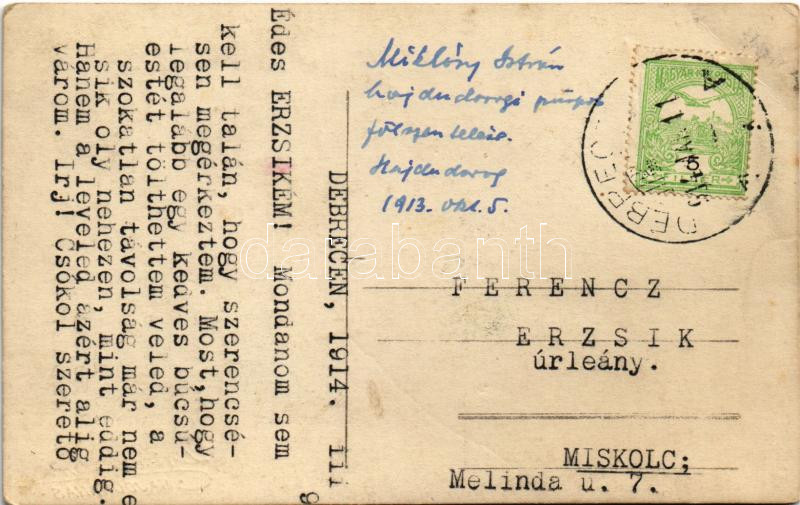 DEBRECEN, 1914. III 9
Édes ERZSIKÉM! Mondanom sem
kell talán, hogy szerencsé-
sen megérkeztem. Most, hogy
legalább egy kedves bucsu-
estét tölthettem veled, a
szokatlan távolság már nem e
sik oly nehezen, mint eddig.
Hanem a leveled azért alig
várom. Irj! Csókol szerető
Miklósy István
hajdudorogi püspök
fölszentelése.
Hajdudorog
1913. okt. 5.
MAGYAR KIR
DEBREC
A
FERENCZ
ERZSIK
úrleány.
MISKOLC;
Melinda u. 7.
darabanth